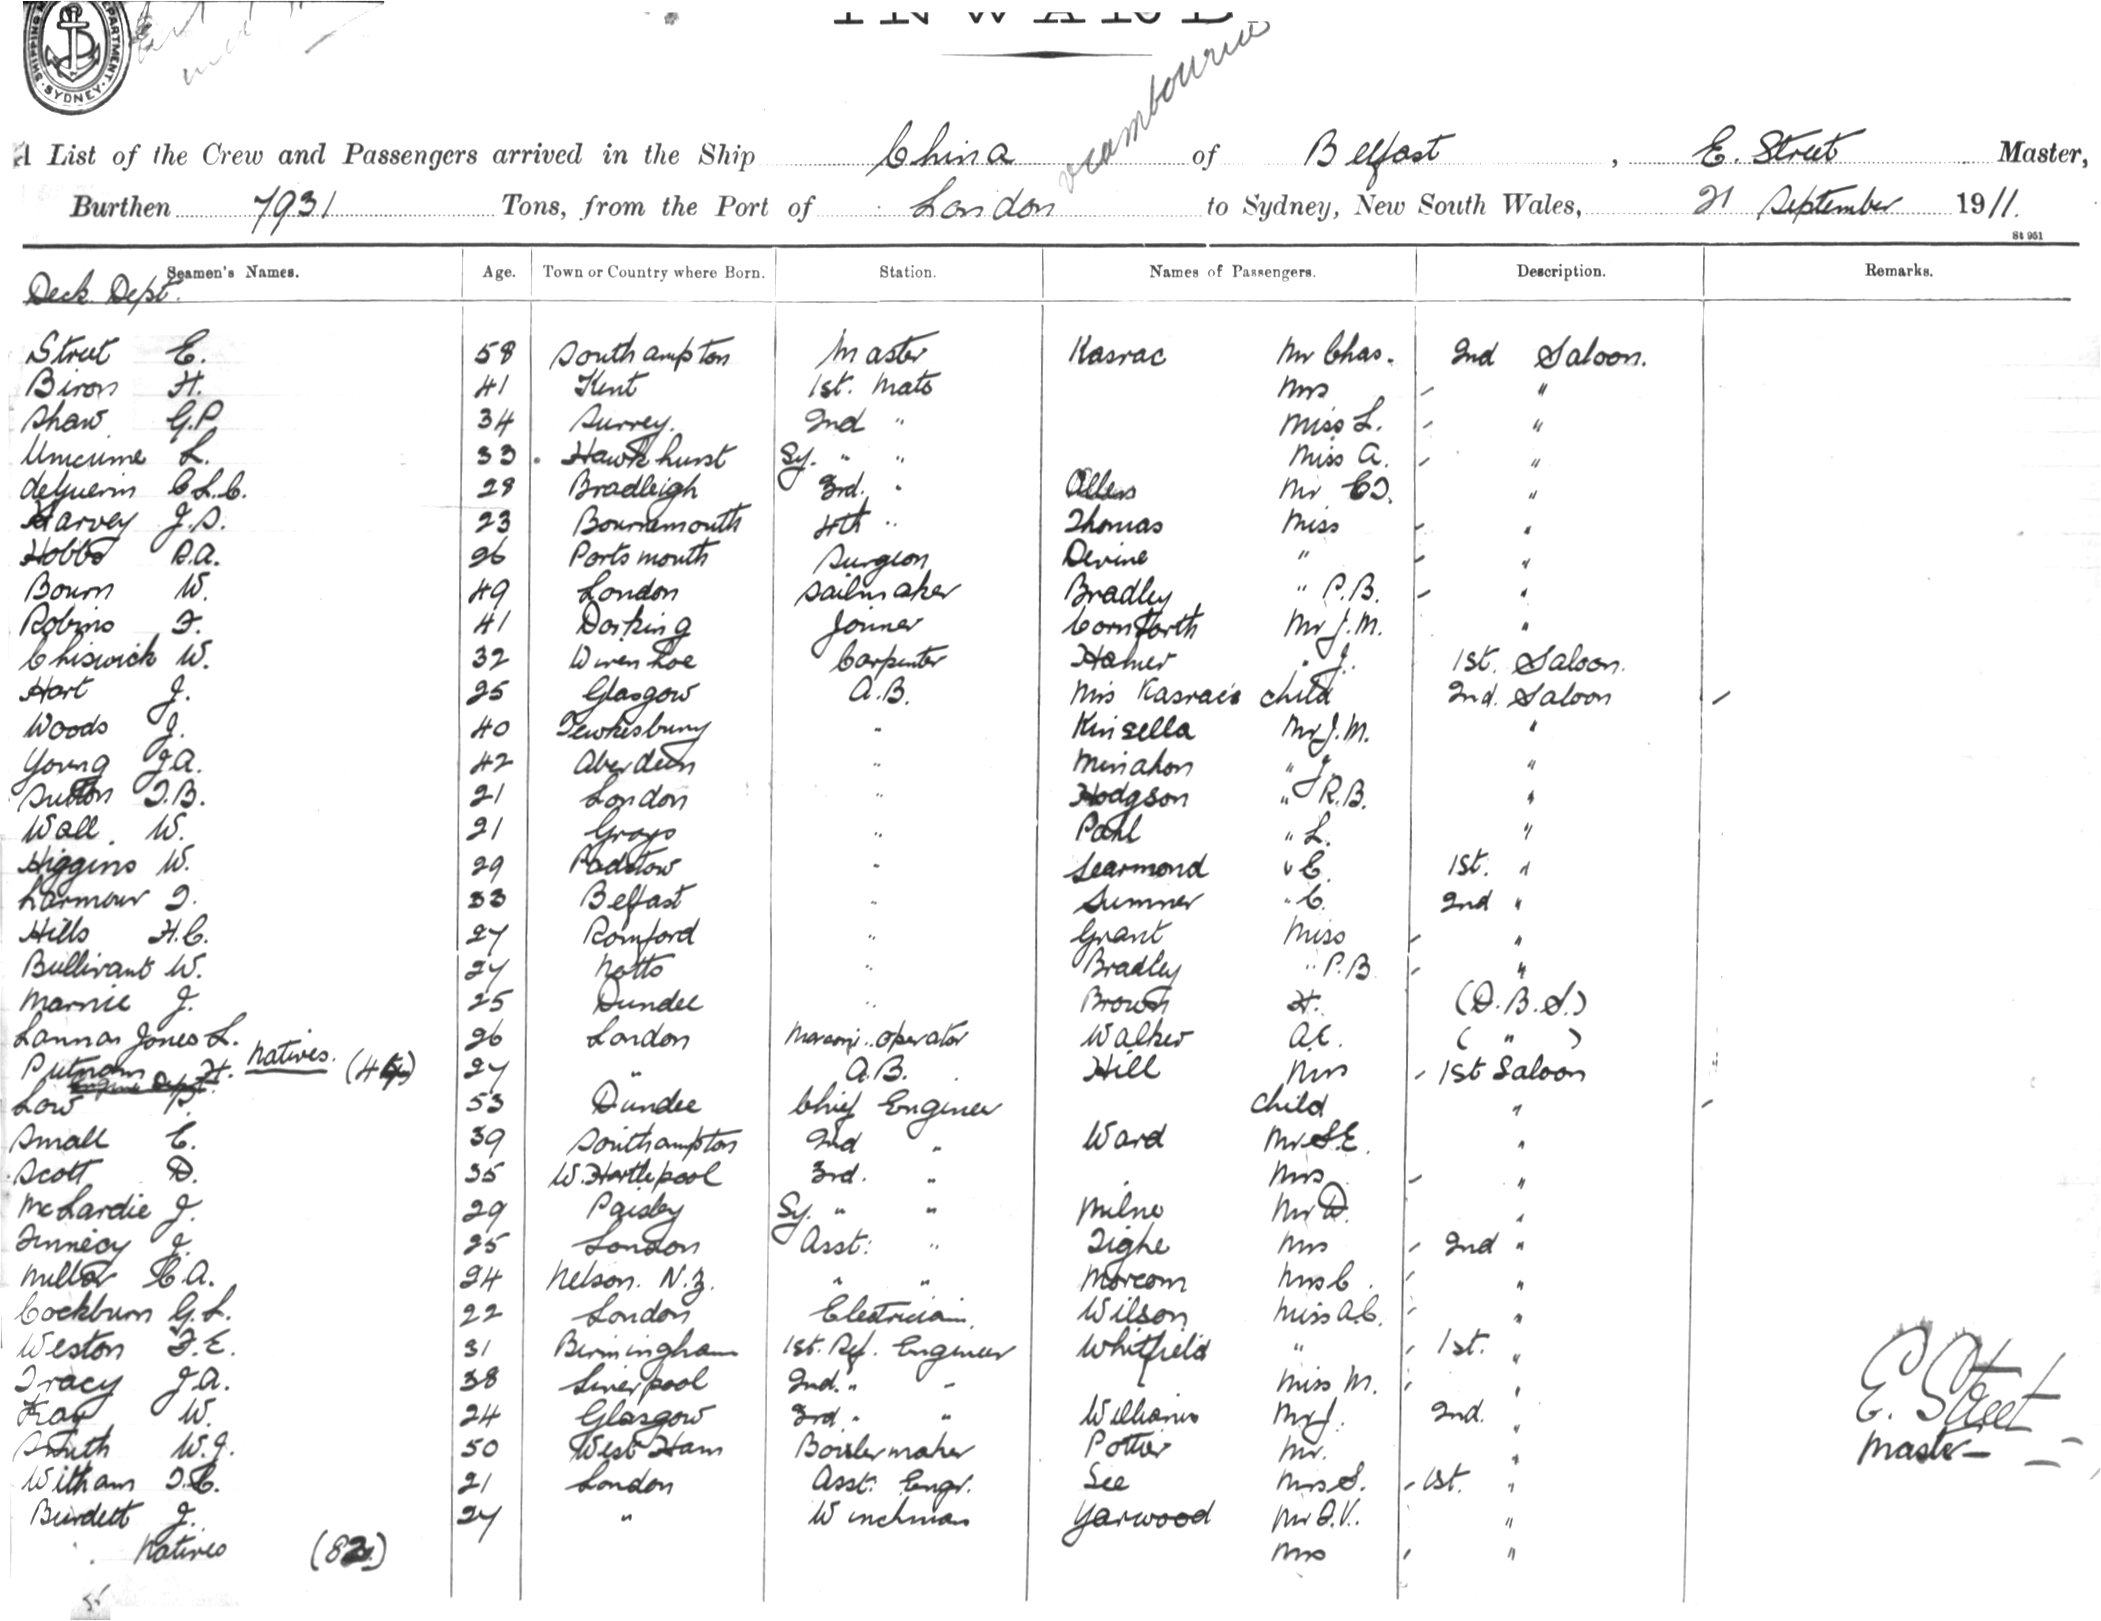 SHIPPING DEPARTMENT SYDNEY
INWARD
A List of the Crew and Passengers arrived in the Ship China of Belfast, E. Street Master,
Burthen 7931 Tons, from the Port of London to Sydney, New South Wales, 21 September 1911.
St 951
Seamen's Names. Age. Town or Country where Born. Station. Names of Passengers. Description. Remarks.
Deck Dept.
Street E. 58 Southampton Master Kasrac Mr Chas. 2nd Saloon.
Biron H. 41 Kent 1st. Mate Mrs "
Shaw G.P. 34 Surrey. 2nd " Miss L. "
L. 33 Hawkhurst Sy. " " Miss A. "
deGuerin C.L.C. 28 Bradleigh 3rd. " Allen Mr "
Harvey J.S. 23 Bournemouth 4th " Thomas Miss "
Hobbs 26 Portsmouth Surgeon Devine " "
Bourn W. 49 London Sailmaker Bradley " P.B. "
Robins F. 41 Dorking Joiner Cornforth Mr J.M. "
Chiswick W. 32 Wivenhoe Carpenter Hamer " J. 1st. Saloon.
Hart J. 25 Glasgow A.B. Mrs Kasrac's child 2nd. Saloon
Woods J. 40 Tewkesbury " Kinsella Mr J.M. "
Young J.A. 42 Aberdeen " Minahon " J. "
Sutton T.B. 21 London " Hodgson " R.B. "
Wall W. 21 Grays " Pahl " L. "
Higgins W. 29 Padstow " Learmond " E. 1st. "
Larmour T. 33 Belfast " Sumner " C. 2nd "
Hills H.C. 27 Romford " Grant Miss "
Bullivant W. 27 Notts " Bradley " P.B "
Marnie J. 25 Dundee " Brown H. (D.B.S.)
Lannon Jones L. 26 London Marconi operator Walker A.E. ( " )
Putnam H. Natives. 27 " A.B. Hill Mrs 1st Saloon
Engine Dept.
Low P. 53 Dundee Chief Engineer Child "
Small E. 39 Southampton 2nd " Ward Mr S.E. "
Scott D. 35 W. Hartlepool 3rd. " Mrs "
McLardie J. 29 Paisley Sy. " " Milne Mr D. "
Finnecy J. 25 London Asst. " Tighe Mrs 2nd "
Millar C.A. 24 Nelson. N.Z. " " Morcom Mrs C. "
Cockburn G.L. 22 London Electrician. Wilson Miss A.C. "
Weston F.E. 31 Birmingham 1st. Ref. Engineer Whitfield " 1st. "
Tracy J.A. 38 Liverpool 2nd. " " Miss M. "
Kay W. 24 Glasgow 3rd " " Williams Mr J. 2nd. "
Smith W.J. 50 West Ham Boilermaker Potter Mr. "
Witham T.C. 21 London Asst. Engr. See Mrs S. 1st. "
Burdett J. 27 " Winchman Yarwood Mr A.V. "
Natives (82) Mrs "
E. Street
Master